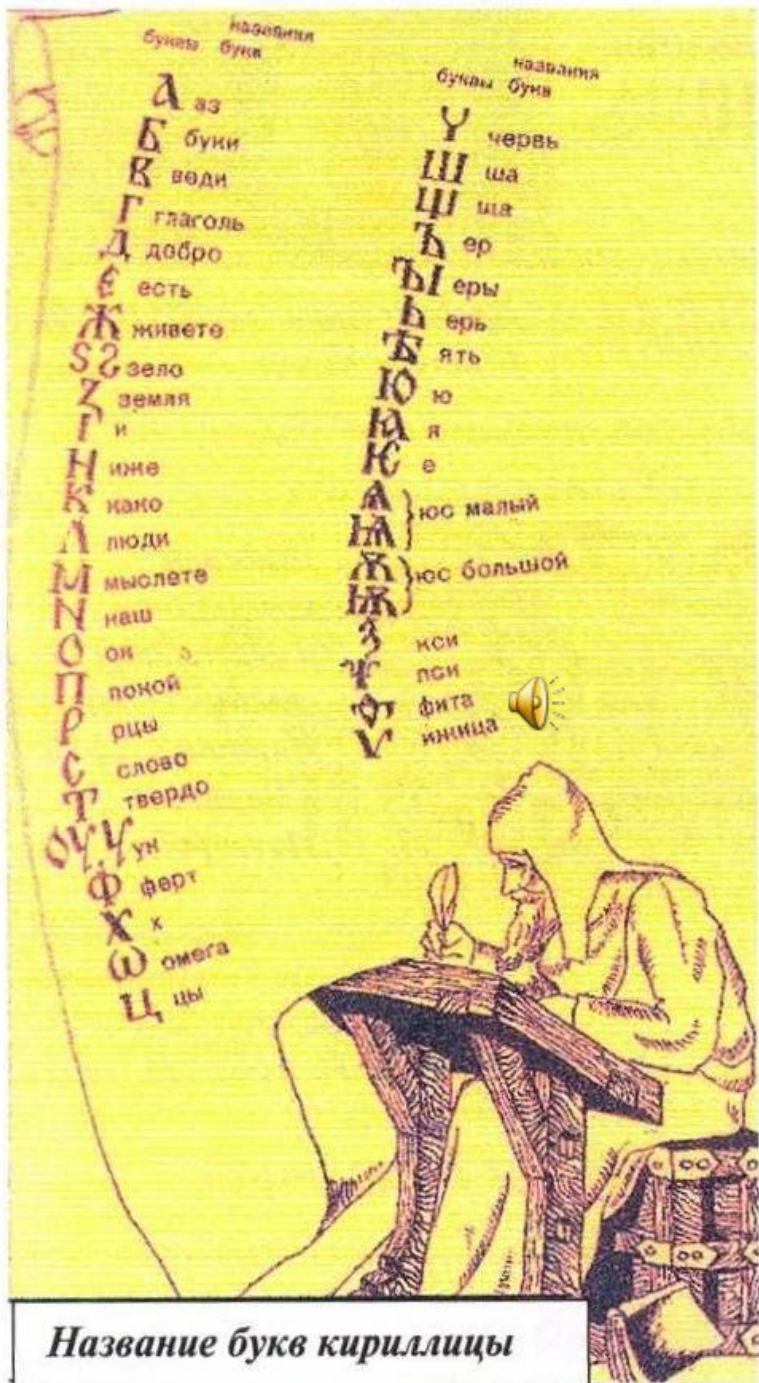 названия
буквы букв
А аз
Б буки
В веди
Г глаголь
Д добро
Є есть
Ж живете
Ѕ Ꙅ зело
З земля
І и
Н иже
К како
Л люди
М мыслете
N наш
О он
П покой
Р рцы
С слово
Т твердо
ОУ, Ү ук
Ф ферт
Х х
Ѡ омега
Ц цы
названия
буквы букв
Ч червь
Ш ша
Щ ща
Ъ ер
ЪІ еры
Ь ерь
Ѣ ять
Ю ю
Ꙗ я
Ѥ е
Ѧ
Ѩ } юс малый
Ѫ
Ѭ } юс большой
Ѯ кси
Ѱ пси
Ѳ фита
Ѵ ижица
Название букв кириллицы